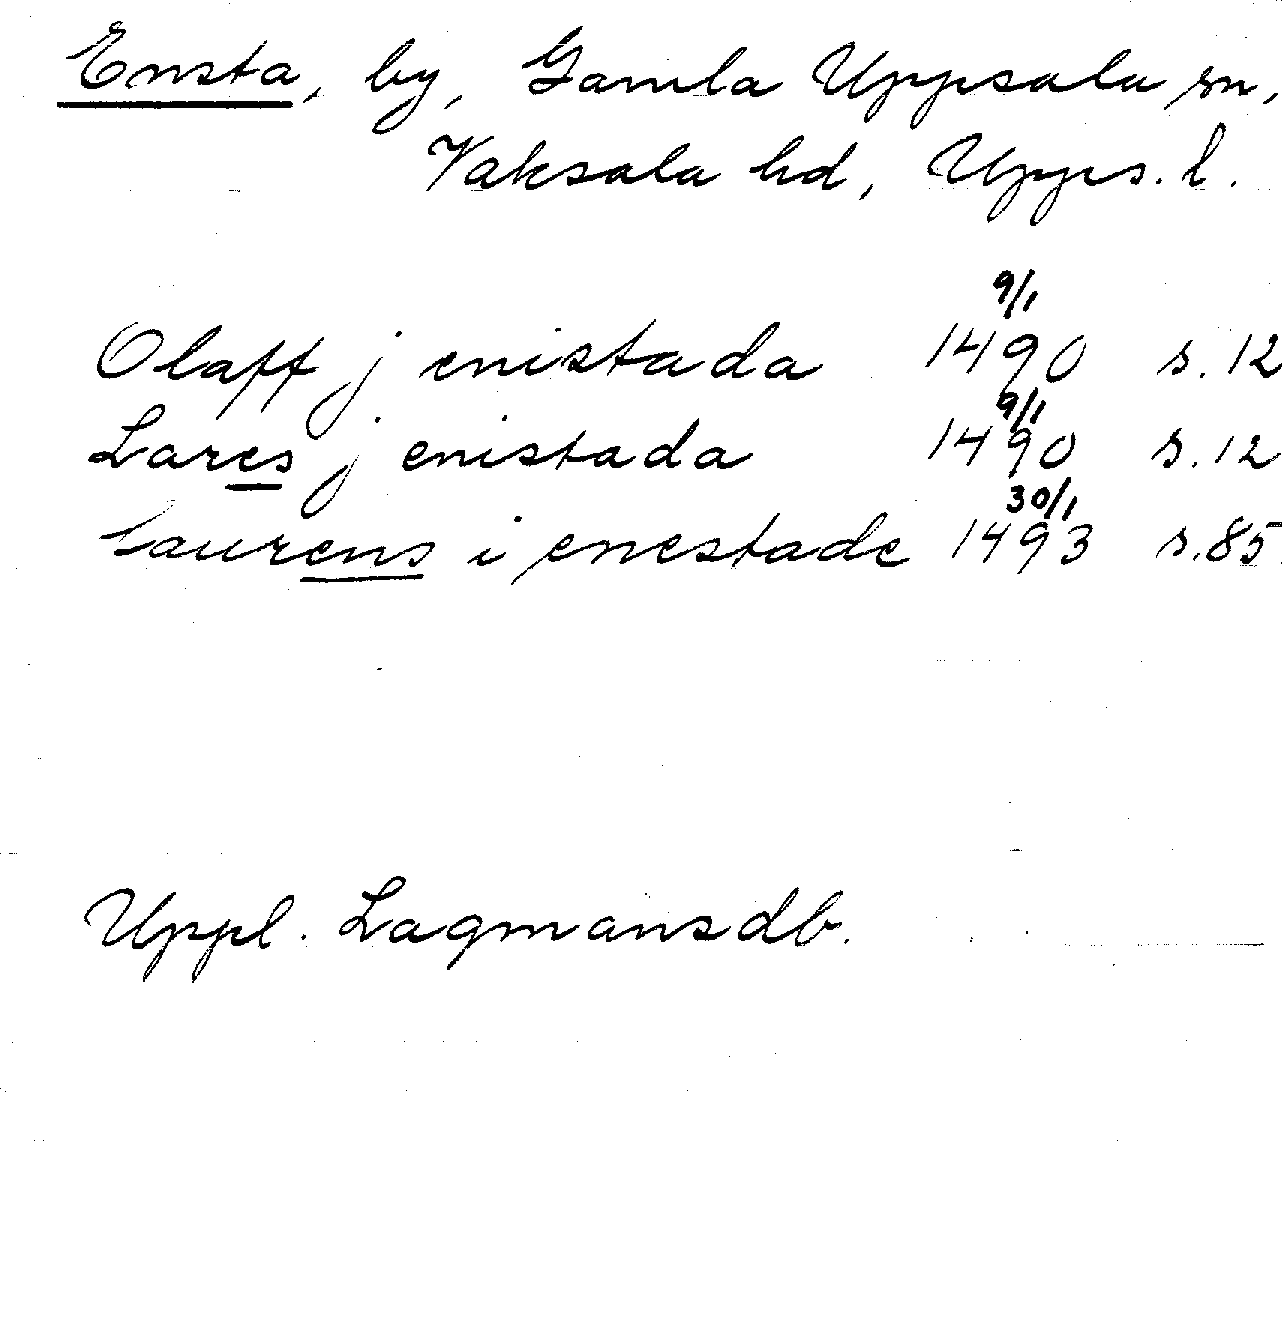 Ensta, by, Gamla Uppsala sn,
Vaksala hd, Upps. l.
9/1
Olaff j enistada 1490 s. 12
9/1
Lares j enistada 1490 s. 12
30/1
laurens i enestade 1493 s. 85.
Uppl. Lagmansdb.